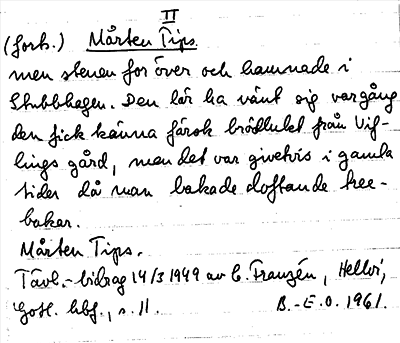 II
(forts.) Mårten Tips
men stenen for över och hamnade i
Stubbhagen. Den lär ha vänt sig var gång
den fick känna färsk brödlukt från Vif-
lings gård, men det var givetvis i gamla
tider då man bakade doftande hee-
bakar.
Mårten Tips.
Tävl.-bidrag 14/3 1949 av C. Franzén, Hellvi,
Gotl. hbf., s. 11. B.-E.O. 1961.